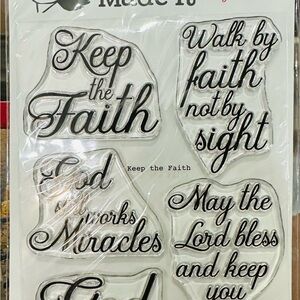 Made It
Keep
the
Faith
Walk by
faith
not by
sight
Keep the Faith
God
works
Miracles
May the
Lord bless
and keep
you
God